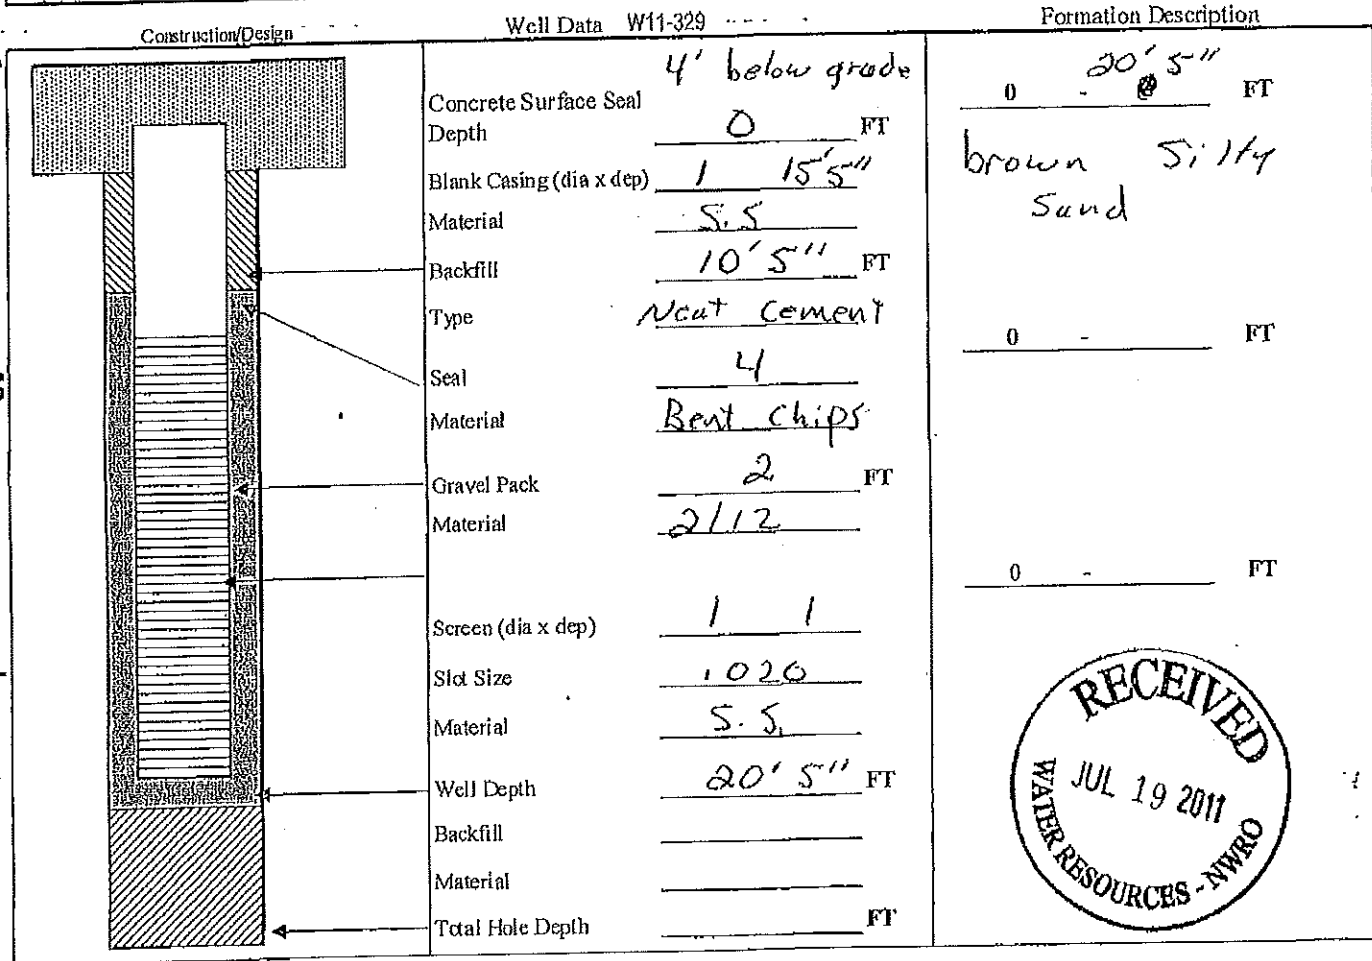 Construction/Design
Well Data W11-329
Formation Description
4' below grade
Concrete Surface Seal
Depth 0 FT
Blank Casing (dia x dep) 1 15'5"
Material S.S
Backfill 10' 5" FT
Type Neat Cement
Seal 4
Material Bent Chips
Gravel Pack 2 FT
Material 2/12
Screen (dia x dep) 1 1
Slot Size .020
Material S.S.
Well Depth 20' 5" FT
Backfill
Material
Total Hole Depth FT
20' 5"
0 - FT
brown Silty
Sand
0 - FT
0 - FT
RECEIVED
JUL 19 2011
WATER RESOURCES - NWRO